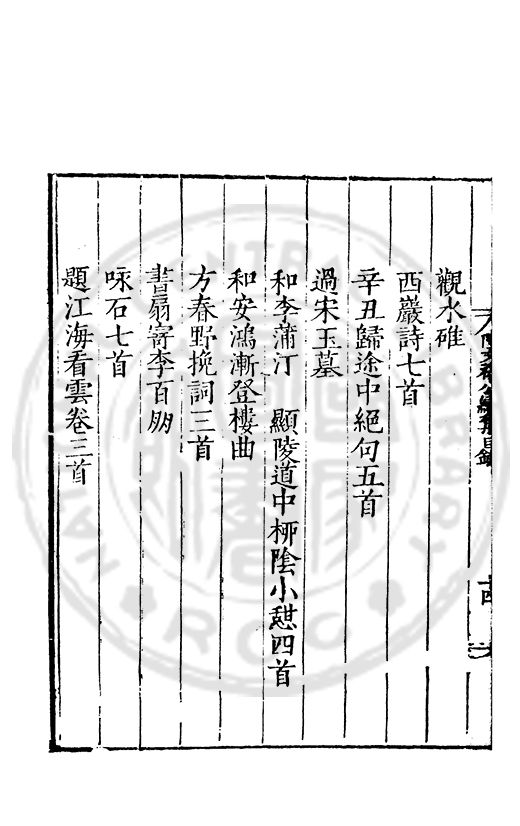 觀水碓
西巖詩七首
辛丑歸途中絕句五首
過宋玉墓
和李蒲汀 顯陵道中栁陰小憇四首
和安鴻漸登樓曲
方春野挽詞三首
書扇寄李百朋
咏石七首
題江海看雲卷三首
目錄
十四